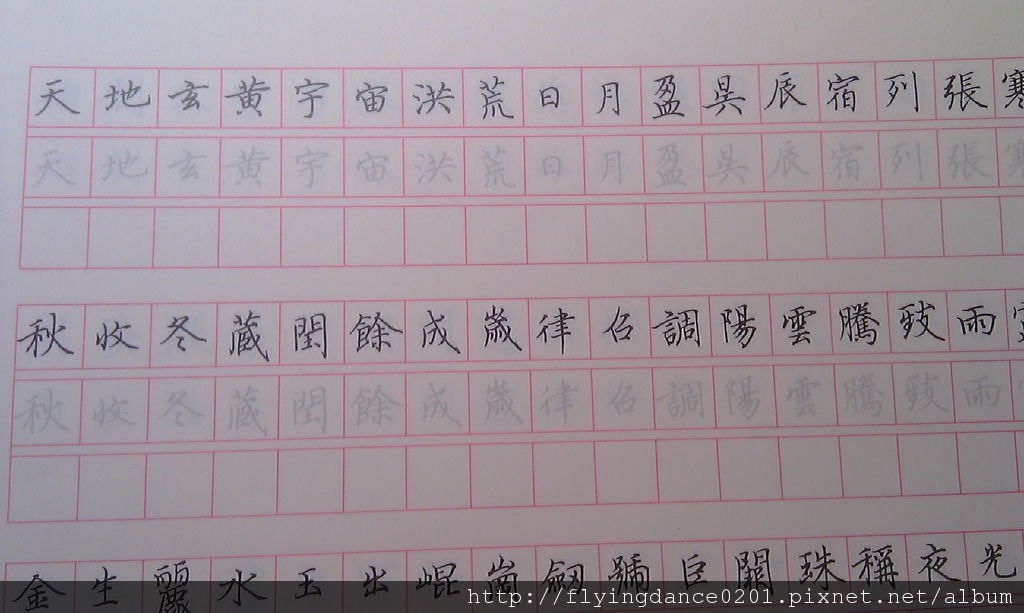 天地玄黃宇宙洪荒日月盈昃辰宿列張寒
天地玄黃宇宙洪荒日月盈昃辰宿列張寒
秋收冬藏閏餘成歲律召調陽雲騰致雨
秋收冬藏閏餘成歲律召調陽雲騰致雨
金生麗水玉出崐崗劒號巨闕珠稱夜光
http://flyingdance0201.pixnet.net/album